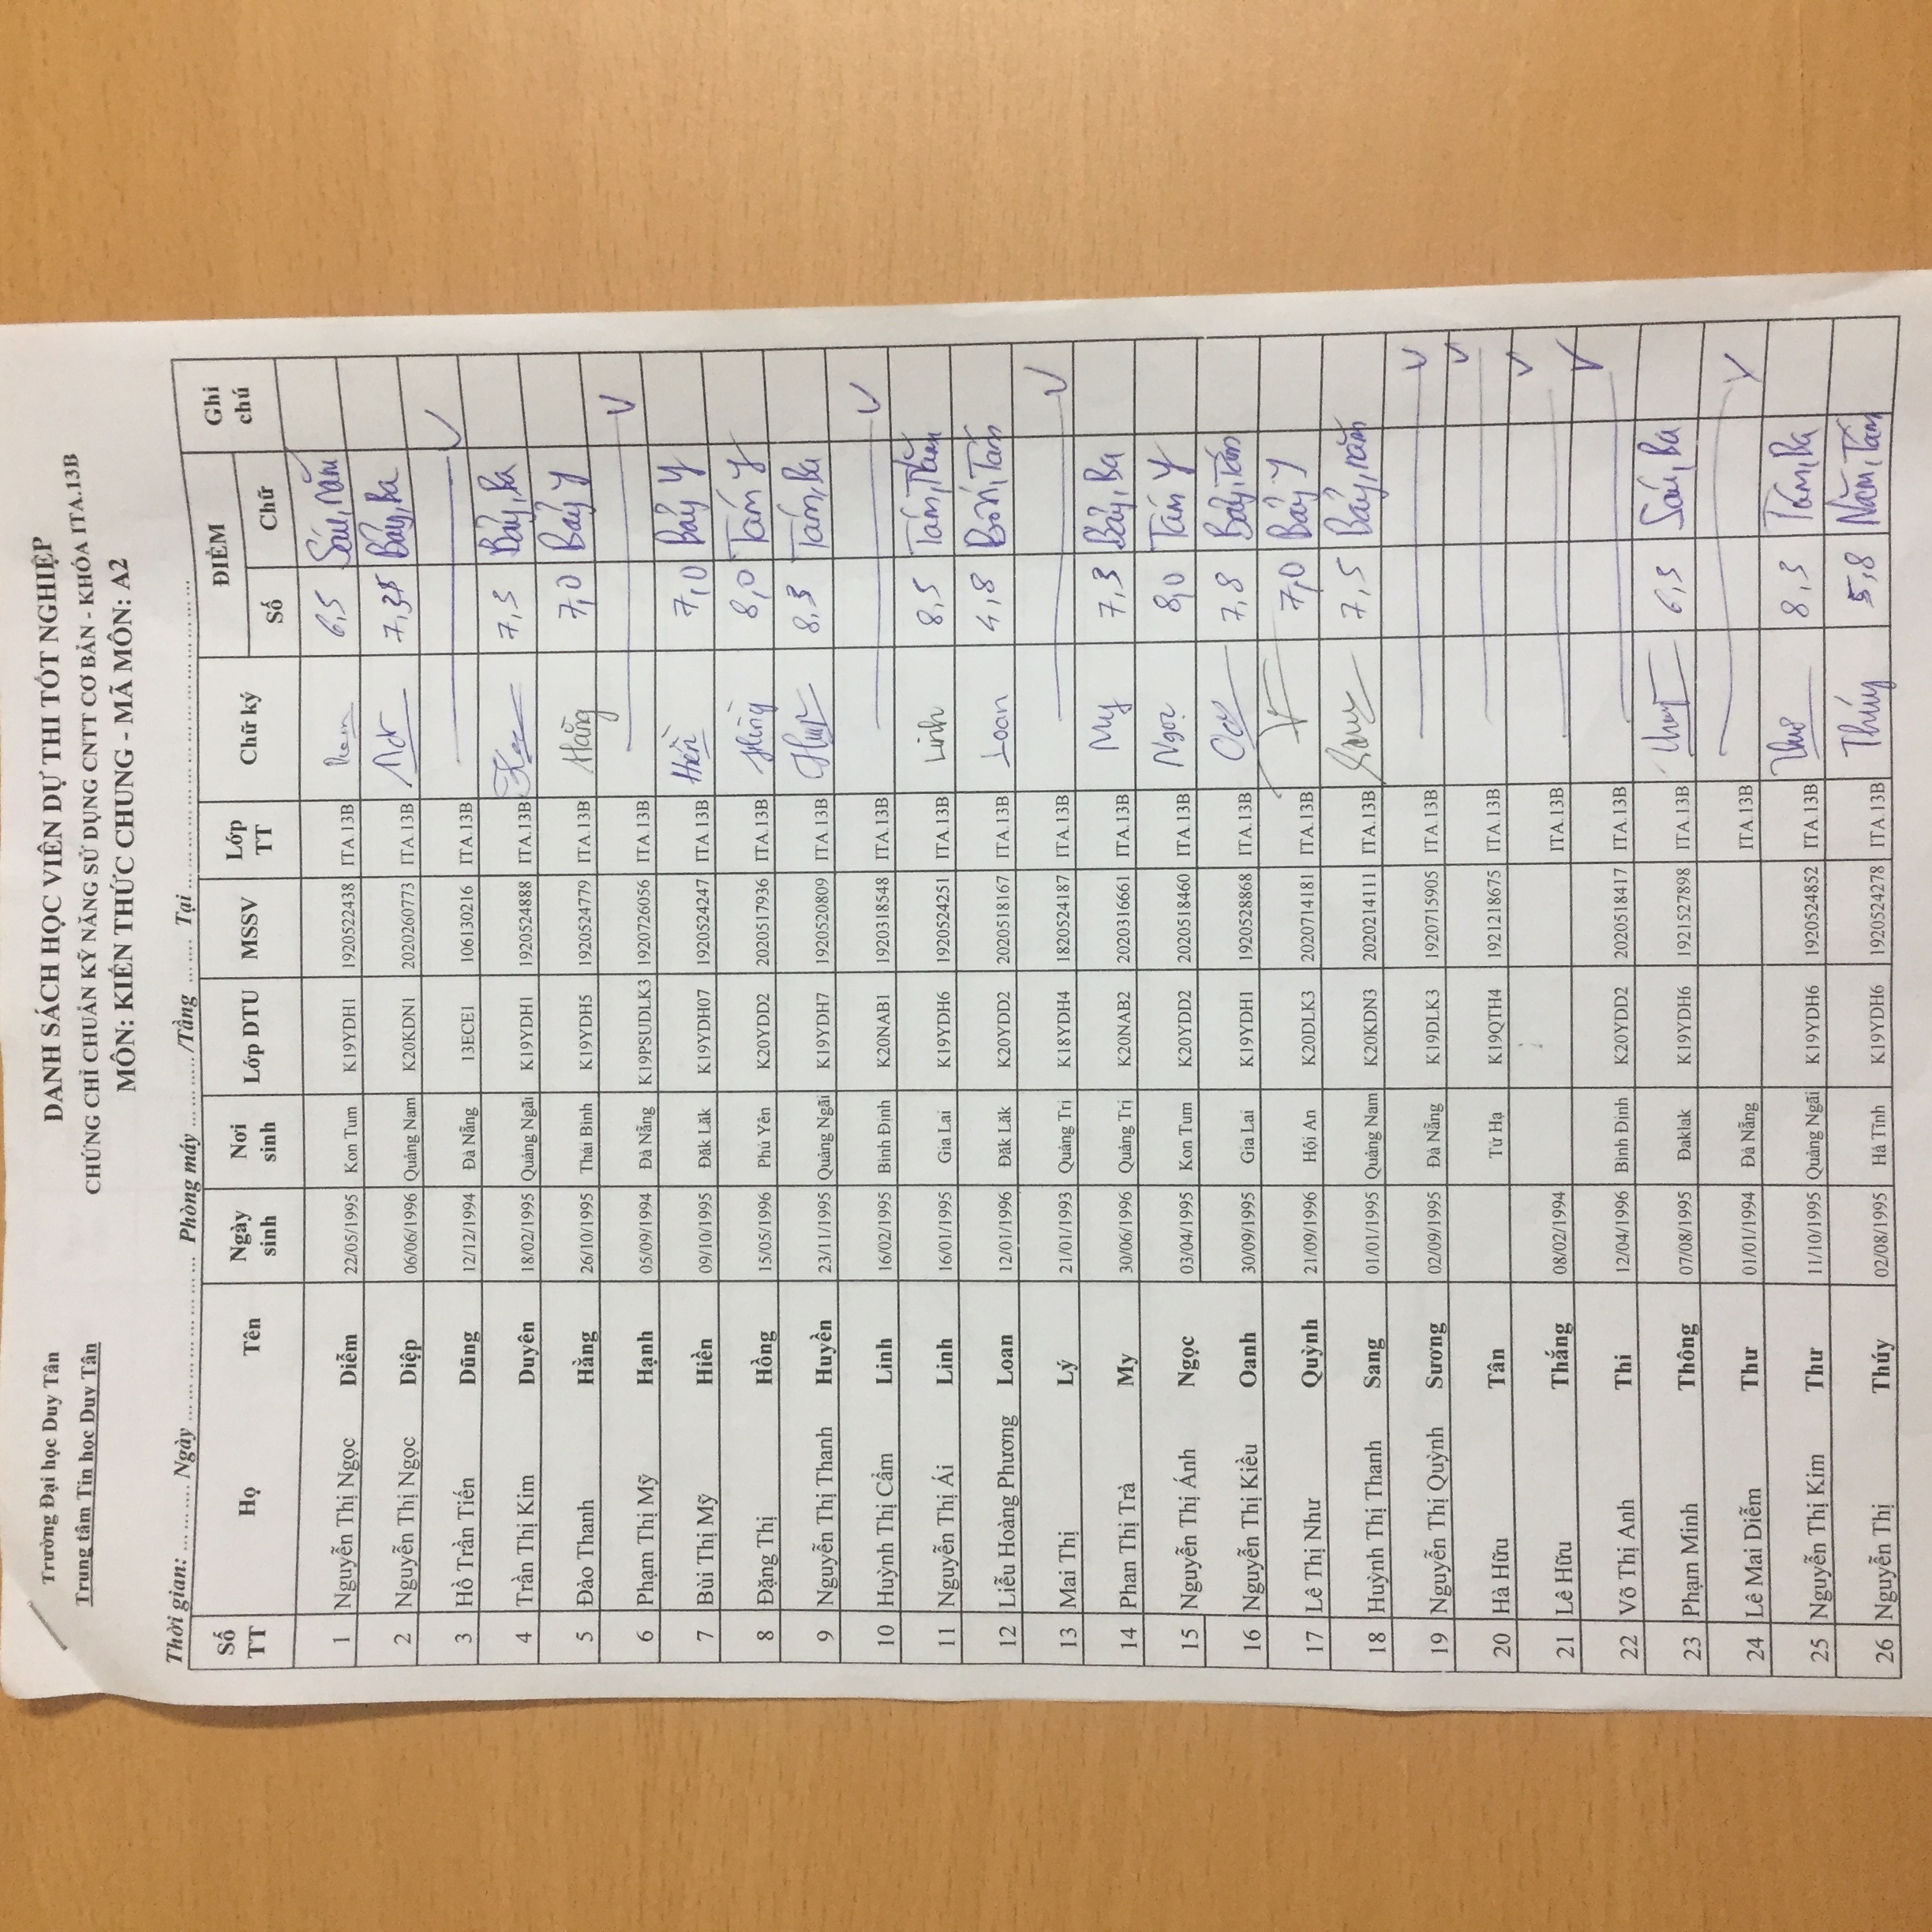 Trường Đại học Duy Tân
Trung tâm Tin học Duy Tân
DANH SÁCH HỌC VIÊN DỰ THI TỐT NGHIỆP
CHỨNG CHỈ CHUẨN KỸ NĂNG SỬ DỤNG CNTT CƠ BẢN - KHÓA ITA.13B
MÔN: KIẾN THỨC CHUNG - MÃ MÔN: A2
Thời gian: ............. Ngày ........................ Phòng máy ............/Tầng ........ Tại ........................
Số TT Họ Tên Ngày sinh Nơi sinh Lớp DTU MSSV Lớp TT Chữ ký ĐIỂM Ghi chú
Số Chữ
1 Nguyễn Thị Ngọc Diễm 22/05/1995 Kon Tum K19YDH1 1920522438 ITA.13B 6,5 Sáu, Năm
2 Nguyễn Thị Ngọc Diệp 06/06/1996 Quảng Nam K20KDN1 2020260773 ITA.13B Bảy, Ba
3 Hồ Trần Tiến Dũng 12/12/1994 Đà Nẵng 13ECE1 106130216 ITA.13B V
4 Trần Thị Kim Duyên 18/02/1995 Quảng Ngãi K19YDH1 1920524888 ITA.13B 7,3 Bảy, Ba
5 Đào Thanh Hằng 26/10/1995 Thái Bình K19YDH5 1920524779 ITA.13B Hằng 7,0 Bảy Y
6 Phạm Thị Mỹ Hạnh 05/09/1994 Đà Nẵng K19PSUDLK3 1920726056 ITA.13B V
7 Bùi Thị Mỹ Hiền 09/10/1995 Đăk Lăk K19YDH07 1920524247 ITA.13B Hiền 7,0 Bảy Y
8 Đặng Thị Hồng 15/05/1996 Phú Yên K20YDD2 2020517936 ITA.13B Hồng 8,0 Tám Y
9 Nguyễn Thị Thanh Huyền 23/11/1995 Quảng Ngãi K19YDH7 1920520809 ITA.13B 8,3 Tám, Ba
10 Huỳnh Thị Cẩm Linh 16/02/1995 Bình Định K20NAB1 1920318548 ITA.13B V
11 Nguyễn Thị Ái Linh 16/01/1995 Gia Lai K19YDH6 1920524251 ITA.13B Linh 8,5 Tám, Năm
12 Liễu Hoàng Phương Loan 12/01/1996 Đăk Lăk K20YDD2 2020518167 ITA.13B Loan 4,8 Bốn, Tám
13 Mai Thị Lý 21/01/1993 Quảng Trị K18YDH4 1820524187 ITA.13B V
14 Phan Thị Trà My 30/06/1996 Quảng Trị K20NAB2 2020316661 ITA.13B My 7,3 Bảy, Ba
15 Nguyễn Thị Ánh Ngọc 03/04/1995 Kon Tum K20YDD2 2020518460 ITA.13B Ngọc 8,0 Tám Y
16 Nguyễn Thị Kiều Oanh 30/09/1995 Gia Lai K19YDH1 1920528868 ITA.13B 7,8 Bảy, Tám
17 Lê Thị Như Quỳnh 21/09/1996 Hội An K20DLK3 2020714181 ITA.13B 7,0 Bảy Y
18 Huỳnh Thị Thanh Sang 01/01/1995 Quảng Nam K20KDN3 2020214111 ITA.13B 7,5 Bảy, năm
19 Nguyễn Thị Quỳnh Sương 02/09/1995 Đà Nẵng K19DLK3 1920715905 ITA.13B V
20 Hà Hữu Tân Tứ Hạ K19QTH4 1921218675 ITA.13B V
21 Lê Hữu Thắng 08/02/1994 ITA.13B V
22 Võ Thị Anh Thi 12/04/1996 Bình Định K20YDD2 2020518417 ITA.13B V
23 Phạm Minh Thông 07/08/1995 Đaklak K19YDH6 1921527898 ITA.13B 6,3 Sáu, Ba
24 Lê Mai Diễm Thư 01/01/1994 Đà Nẵng ITA.13B V
25 Nguyễn Thị Kim Thư 11/10/1995 Quảng Ngãi K19YDH6 1920524852 ITA.13B Thư 8,3 Tám, Ba
26 Nguyễn Thị Thúy 02/08/1995 Hà Tĩnh K19YDH6 1920524278 ITA.13B Thúy 5,8 Năm, Tám